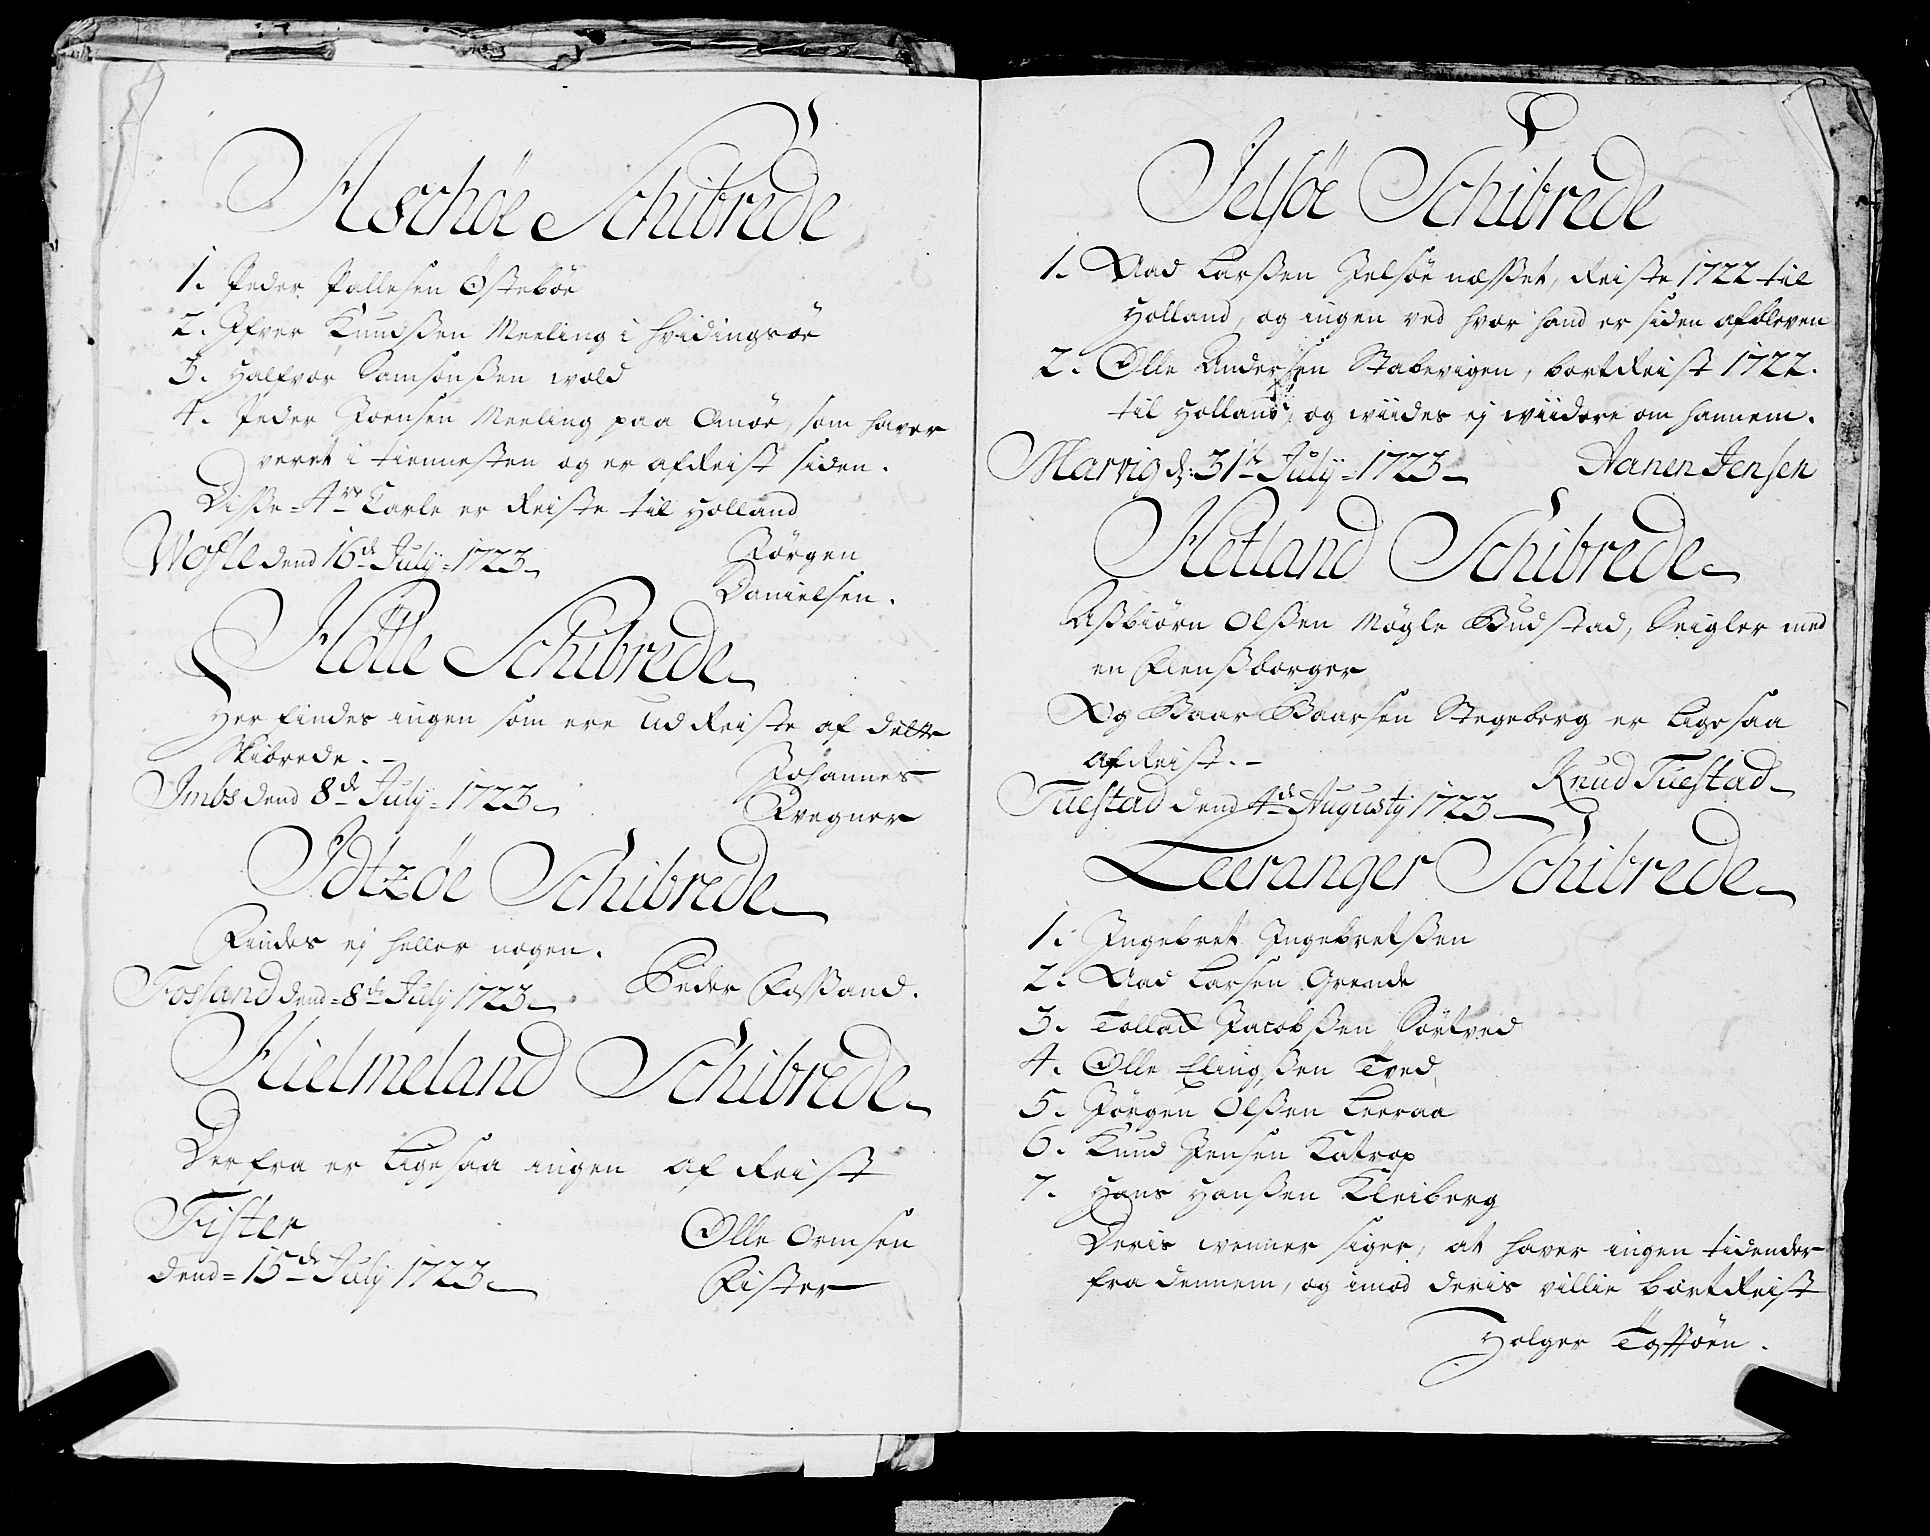 Aschöe Schibrede
1. Peder Pallesen Östeböe
2. Ifver Knudsßen Meeling i Hvidingsöe
3. Halfvor Samsonsßen wold
4. Peder Joensen Meeling paa Omöe, som haver
veret i tiennesten og er afReist siden.
Disse 4re Karle er Reiste til Holland
dend 16de July 1723
Jörgen
Danielsen.
Holle Schibrede
Her findes ingen som ere UdReiste af dette
Skibrede.
Imbs dend 8de July 1723
Johannes
Idtzöe Schibrede
Findes ej heller nogen.
Fossand dend 8de July 1723
Peder Foßand.
Hielmeland Schibrede
Derfra er Ligesaa ingen afReist
Fister
dend 15de July 1723
Olle Ormsen
Fister
Jelsöe Schibrede
1. Aad Larßen Jelsöe næsset, Reiste 1722 til
Holland, og ingen ved hvor hand er siden afbleven
2. Olle Andersen Stabevigen, bortReist 1722.
til Holland, og wiides ej wiidere om hannem.
Marvig d: 31te July 1723
Aanen Jensen
Hetland Schibrede
Aßbiörn Olßen Mögle Budstad, Seigler med
en Flensßborger
Og Baar Baarsen Stegeberg er Ligesaa
afReist.
Tuestad dend 4de Augusty 1723
Knud Tuestad
Leeranger Schibrede
1. Ingebret Ingebretßen
2. Aad Larsen Grende
3. Tollack Jacobßen Sörtved
4. Olle Elingßen Tved
5. Jörgen Olßen Leeraa
6. Knud Jensen Katrop
7. Hans Hanßen Kleiberg
Deris wenner siger, at haver ingen tidender
fra dennem, og imod deris villie bortReist
Holger